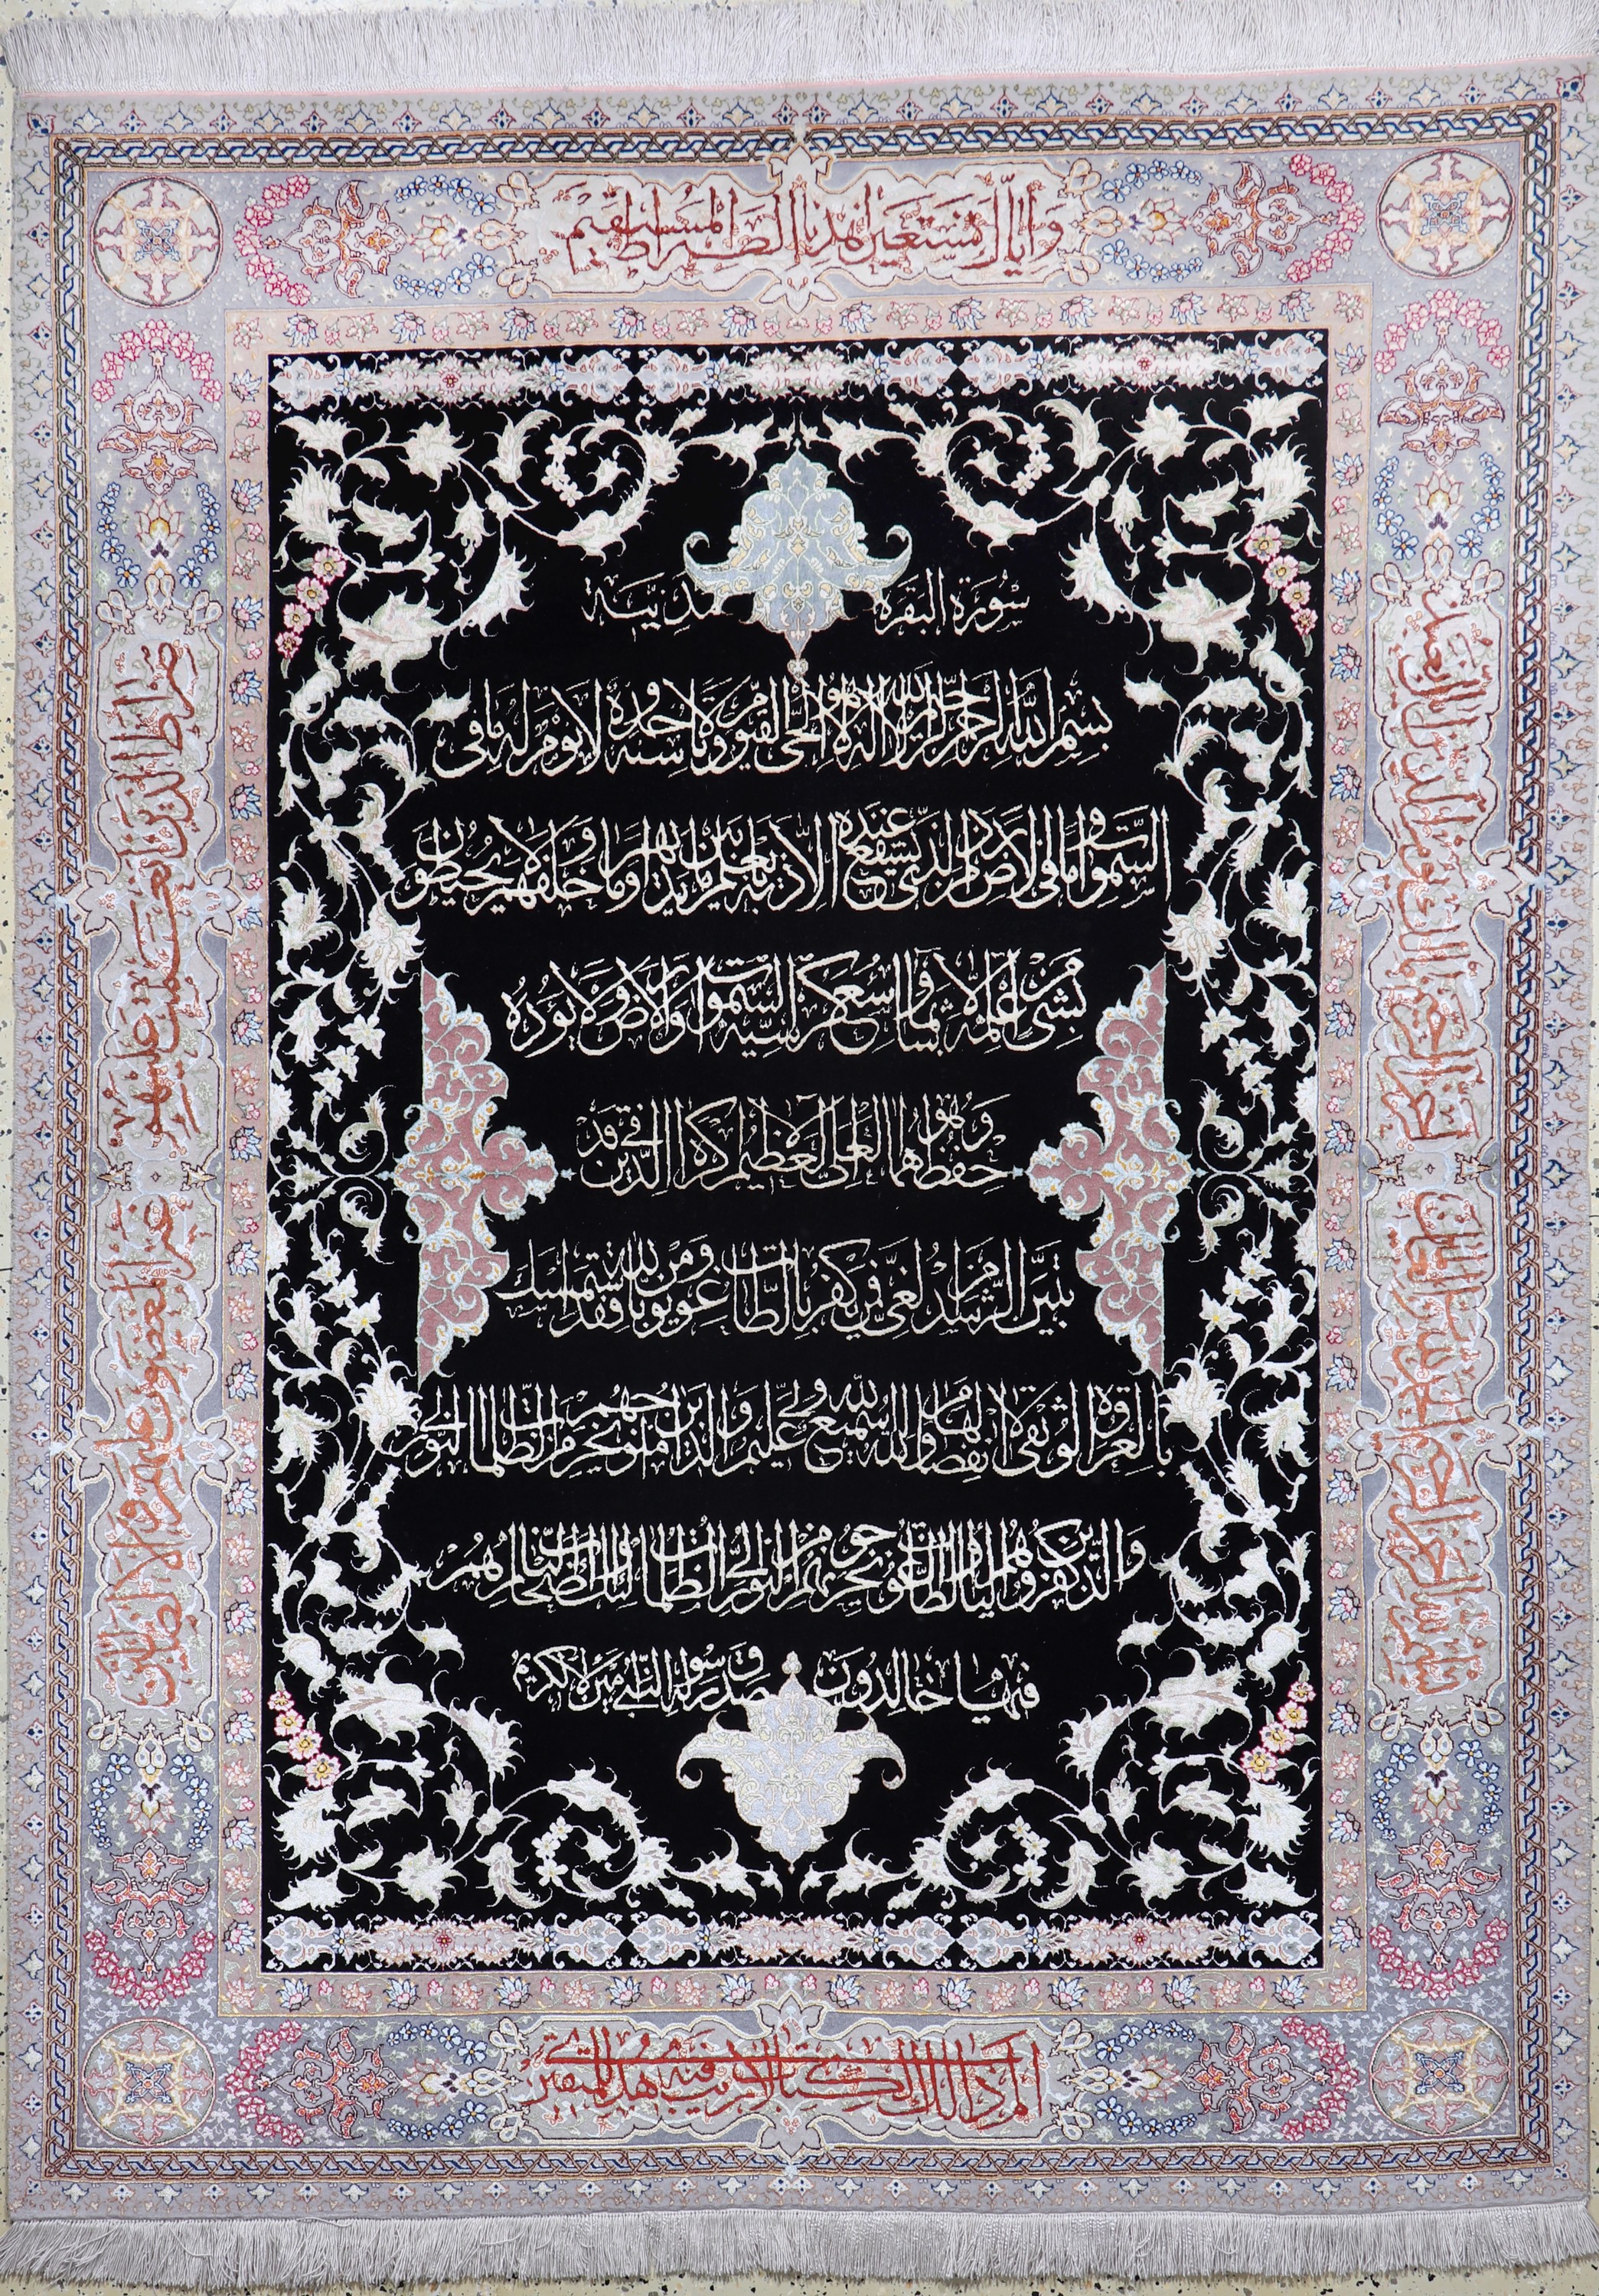 بسم الله الرحمن الرحيم الحمد لله رب العالمين الرحمن الرحيم مالك يوم الدين اياك نعبد
واياك نستعين اهدنا الصراط المستقيم
صراط الذين انعمت عليهم
غير المغضوب عليهم ولا الضالين
سورة البقره مدنيه
بسم الله الرحمن الرحيم الله لا اله الا هو الحي القيوم لا تاخذه سنة ولا نوم له ما في
السموات وما في الارض من ذا الذي يشفع عنده الا باذنه يعلم ما بين ايديهم وما خلفهم ولا يحيطون
بشئ من علمه الا بما شاء وسع كرسيه السموات والارض ولا يؤده
حفظهما وهو العلي العظيم لا اكراه في الدين قد
تبين الرشد من الغي فمن يكفر بالطاغوت ويؤمن بالله فقد استمسك
بالعروة الوثقى لا انفصام لها والله سميع عليم الله ولي الذين امنوا يخرجهم من الظلمات الى النور
والذين كفروا اولياؤهم الطاغوت يخرجونهم من النور الى الظلمات اولئك اصحاب النار هم
فيها خالدون صدق رسوله النبي الكريم
الم ذالك الكتاب لا ريب فيه هدى للمتقين